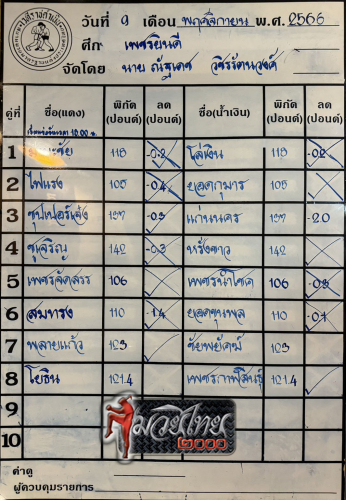 วันที่ 9 เดือน พฤศจิกายน พ.ศ. 2566
ศึก เพชรยินดี
จัดโดย นาย ณัฐเดช วชิรรัตนวงศ์
คู่ที่ ชื่อ(แดง) พิกัด (ปอนด์) ลด (ปอนด์) ชื่อ(น้ำเงิน) พิกัด (ปอนด์) ลด (ปอนด์)
1 118 -0.2 โล่เงิน 118 -0.2
2 ไฟแรง 105 -0.4 ยอดกุมาร 105
3 ซุปเปอร์เจ๋ง 137 -0.3 แก่นนคร 137 -2.0
4 ชูเจริญ 142 -0.3 หรั่งขาว 142
5 เพชรจัดสรร 106 เพชรนำโชค 106 -0.3
6 สมทรง 110 -1.4 ยอดขุนพล 110 -0.7
7 พลายแก้ว 123 ชัยพยัคฆ์ 123
8 โยธิน 121.4 เพชรกาฬสินธุ์ 121.4
9
10
มวยไทย
2000
คำดู
ผู้ควบคุมรายการ